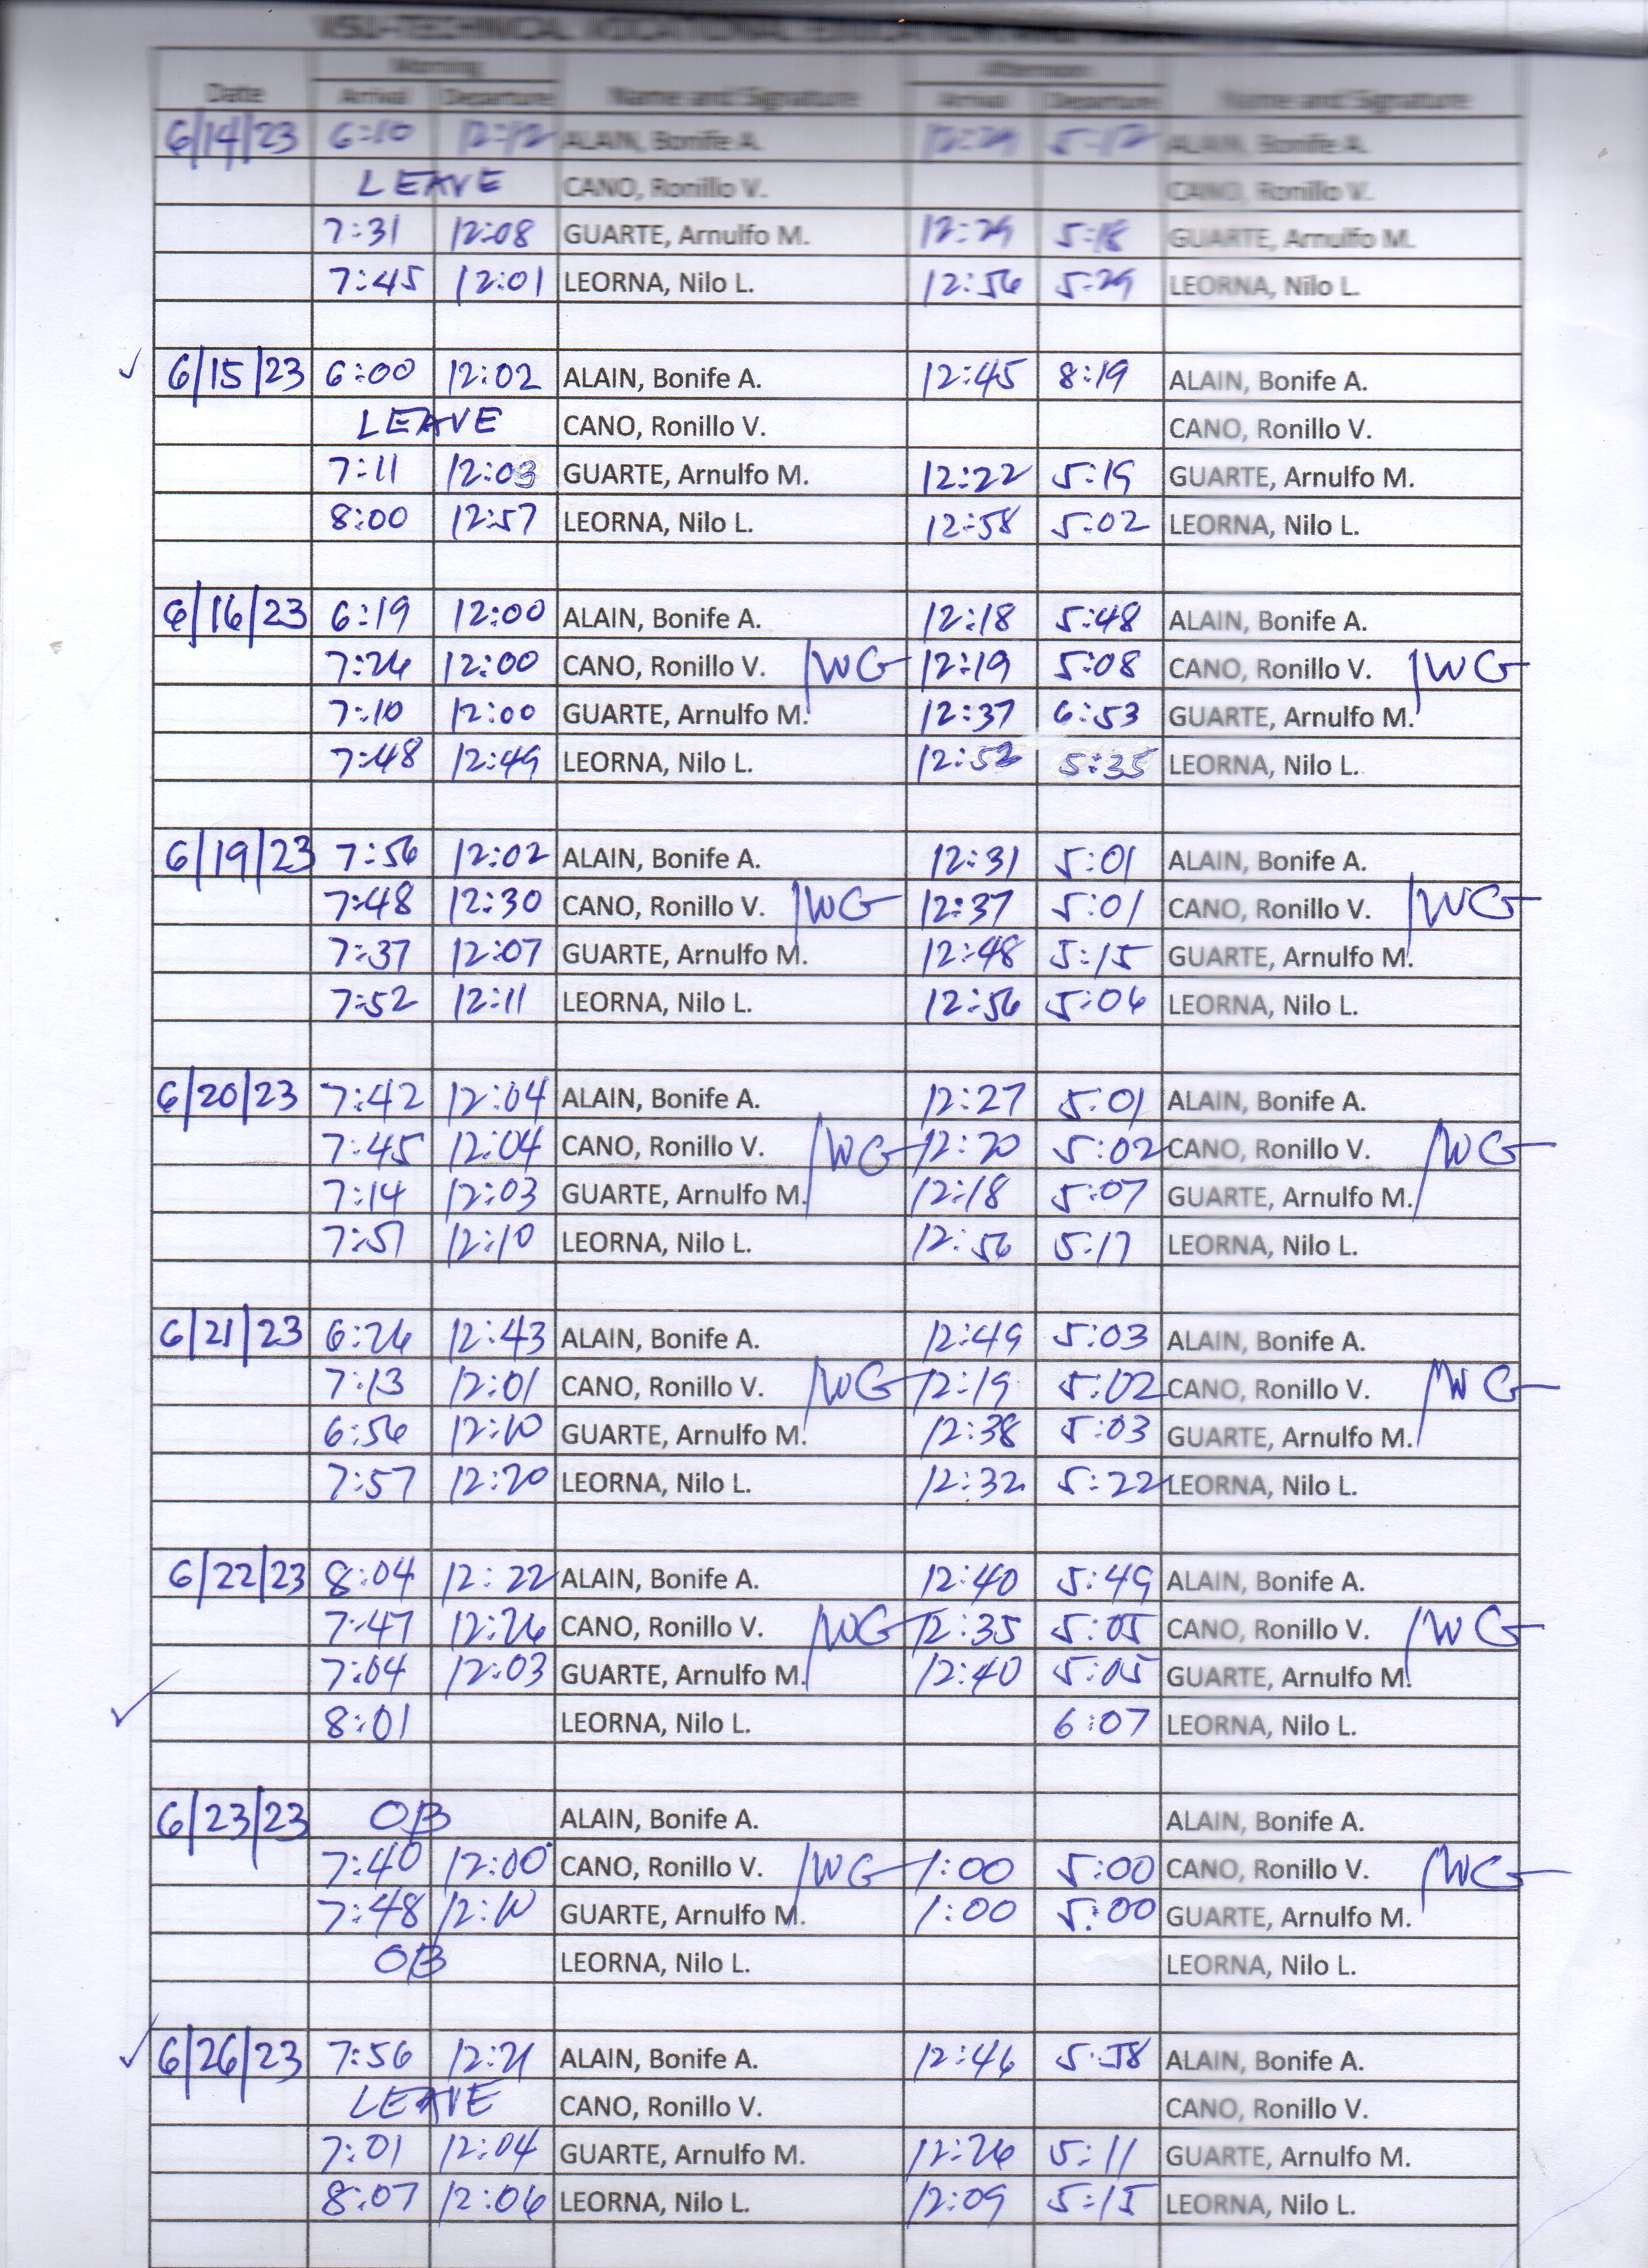 VISU-TECHNICAL VOCATIONAL EDUCATION AND
Morning Afternoon
Date Arrival Departure Name and Signature Arrival Departure Name and Signature
6/14/23 6:10 12:12 ALAIN, Bonife A. 12:29 5:12 ALAIN, Bonife A.
LEAVE CANO, Ronillo V. CANO, Ronillo V.
7:31 12:08 GUARTE, Arnulfo M. 12:29 5:18 GUARTE, Arnulfo M.
7:45 12:01 LEORNA, Nilo L. 12:56 5:29 LEORNA, Nilo L.
6/15/23 6:00 12:02 ALAIN, Bonife A. 12:45 8:19 ALAIN, Bonife A.
LEAVE CANO, Ronillo V. CANO, Ronillo V.
7:11 12:03 GUARTE, Arnulfo M. 12:22 5:19 GUARTE, Arnulfo M.
8:00 12:57 LEORNA, Nilo L. 12:58 5:02 LEORNA, Nilo L.
6/16/23 6:19 12:00 ALAIN, Bonife A. 12:18 5:48 ALAIN, Bonife A.
7:26 12:00 CANO, Ronillo V. WG 12:19 5:08 CANO, Ronillo V. WG
7:10 12:00 GUARTE, Arnulfo M. 12:37 6:53 GUARTE, Arnulfo M.
7:48 12:49 LEORNA, Nilo L. 12:52 5:35 LEORNA, Nilo L.
6/19/23 7:56 12:02 ALAIN, Bonife A. 12:31 5:01 ALAIN, Bonife A.
7:48 12:30 CANO, Ronillo V. WG 12:37 5:01 CANO, Ronillo V. WG
7:37 12:07 GUARTE, Arnulfo M. 12:48 5:15 GUARTE, Arnulfo M.
7:52 12:11 LEORNA, Nilo L. 12:56 5:06 LEORNA, Nilo L.
6/20/23 7:42 12:04 ALAIN, Bonife A. 12:27 5:01 ALAIN, Bonife A.
7:45 12:04 CANO, Ronillo V. WG 12:20 5:02 CANO, Ronillo V. WG
7:14 12:03 GUARTE, Arnulfo M. 12:18 5:07 GUARTE, Arnulfo M.
7:51 12:10 LEORNA, Nilo L. 12:56 5:17 LEORNA, Nilo L.
6/21/23 6:26 12:43 ALAIN, Bonife A. 12:49 5:03 ALAIN, Bonife A.
7:13 12:01 CANO, Ronillo V. WG 12:19 5:02 CANO, Ronillo V. WG
6:56 12:10 GUARTE, Arnulfo M. 12:38 5:03 GUARTE, Arnulfo M.
7:57 12:20 LEORNA, Nilo L. 12:32 5:22 LEORNA, Nilo L.
6/22/23 8:04 12:22 ALAIN, Bonife A. 12:40 5:49 ALAIN, Bonife A.
7:47 12:26 CANO, Ronillo V. WG 12:35 5:05 CANO, Ronillo V. WG
7:04 12:03 GUARTE, Arnulfo M. 12:40 5:05 GUARTE, Arnulfo M.
8:01 LEORNA, Nilo L. 6:07 LEORNA, Nilo L.
6/23/23 OB ALAIN, Bonife A. ALAIN, Bonife A.
7:40 12:00 CANO, Ronillo V. WG 1:00 5:00 CANO, Ronillo V. WG
7:48 12:10 GUARTE, Arnulfo M. 1:00 5:00 GUARTE, Arnulfo M.
OB LEORNA, Nilo L. LEORNA, Nilo L.
6/26/23 7:56 12:21 ALAIN, Bonife A. 12:46 5:58 ALAIN, Bonife A.
LEAVE CANO, Ronillo V. CANO, Ronillo V.
7:01 12:04 GUARTE, Arnulfo M. 12:26 5:11 GUARTE, Arnulfo M.
8:07 12:06 LEORNA, Nilo L. 12:09 5:15 LEORNA, Nilo L.